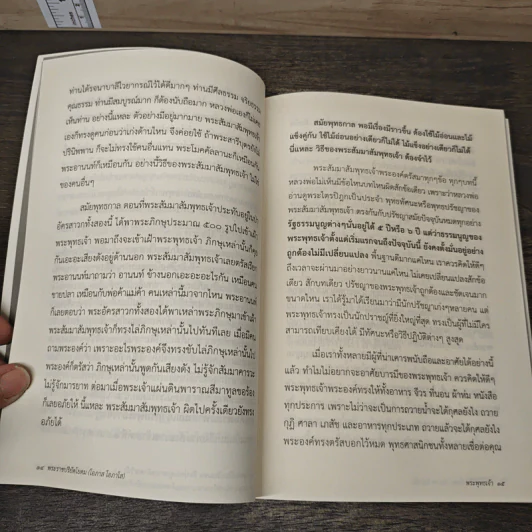 ท่านได้รจนาบาลีไวยากรณ์ไว้ได้ดีมากๆ ท่านมีศีลธรรม จริยธรรม
คุณธรรม ท่านมีสมบูรณ์มาก ก็ต้องนับถือมาก หลวงพ่อเองก็ไม่เคย
เห็นท่าน อย่างนี้แหละ ตัวอย่างมีอยู่มากมาย พระสัมมาสัมพุทธเจ้า
เองก็ทรงดูคนก่อนว่าเก่งด้านไหน จึงค่อยใช้ ถ้าพระสารีบุตร
ปรินิพพาน ก็จะไม่ทรงใช้คนอื่นแทน พระโมคคัลลานะก็เหมือนกัน
พระอานนท์ก็เหมือนกัน อย่างนี้วิธีของพระสัมมาสัมพุทธเจ้า
ของคนอื่นๆ
สมัยพุทธกาล ตอนที่พระสัมมาสัมพุทธเจ้าประทับอยู่
อัครสาวกทั้งสองนี้ ได้พาพระภิกษุประมาณ ๕๐๐ รูปไปเข้าเฝ้า
พระพุทธเจ้า พอมาถึงจะเข้าเฝ้าพระพุทธเจ้า ภิกษุเหล่านั้นก็คุย
กันเอะอะเสียงดังอยู่ด้านนอก พระสัมมาสัมพุทธเจ้าเลยตรัสเรียก
พระอานนท์มาถามว่า อานนท์ ข้างนอกเอะอะอะไรกัน เหมือนคน
ขายปลา เหมือนกับพ่อค้าแม่ค้า คนเหล่านี้มาจากไหน พระอานนท์
ก็เลยตอบว่า พระอัครสาวกทั้งสองได้พาเหล่าพระภิกษุมาเข้าเฝ้า
พระสัมมาสัมพุทธเจ้าทรงไล่ภิกษุเหล่านั้นไปทันทีเลย เมื่อมีคน
ถามพระองค์ว่า เพราะอะไรพระองค์จึงทรงขับไล่ภิกษุเหล่านั้นไป
พระองค์ก็ตรัสว่า ภิกษุเหล่านั้นพูดกันเสียงดัง ไม่รู้จักสัมมาคารวะ
ไม่รู้จักมารยาท ต่อมาเมื่อพระเจ้าแผ่นดินพาราณสีมาทูลขอร้อง
ก็เลยอภัยให้ นี้แหละ พระสัมมาสัมพุทธเจ้า ผิดไปครั้งเดียวยังทรง
อภัยได้
๑๔ พระราชปริยัติโมลี (โอภาส โอภาโส)
สมัยพุทธกาล พอมีเรื่องมีราวขึ้น ต้องใช้ไม้อ่อนและไม้
แข็งคู่กัน ใช้ไม้อ่อนอย่างเดียวก็ไม่ได้ ไม้แข็งอย่างเดียวก็ไม่ได้
นี่แหละ วิธีของพระสัมมาสัมพุทธเจ้า ต้องจำไว้
พระสัมมาสัมพุทธเจ้าพระองค์ตรัสมาทุกๆข้อ ทุกๆบทนี้
หลวงพ่อไม่เห็นมีข้อไหนบทไหนผิดสักข้อเดียว เพราะว่าหลวงพ่อ
อ่านดูพระไตรปิฎกเป็นประจำ พุทธทัศนะหรือพุทธปรัชญาของ
พระสัมมาสัมพุทธเจ้า ตรงกันกับปรัชญาสมัยปัจจุบันหมดทุกอย่าง
รัฐธรรมนูญต่างๆนั้นอยู่ได้ ๕ ปี หรือ ๖ ปี แต่ว่าธรรมนูญของ
พระพุทธเจ้าตั้งแต่เริ่มแรกจนถึงปัจจุบันนี้ ยังคงตั้งมั่นอยู่อย่าง
ถูกต้องไม่มีเปลี่ยนแปลง พื้นฐานดีมากแค่ไหน เราควรคิดให้ดีๆ
ถึงเวลาจะผ่านมาอย่างยาวนานแค่ไหน ไม่เคยเปลี่ยนแปลงสักข้อ
เดียว สักบทเดียว ปรัชญาของพระพุทธเจ้าถูกต้องและชัดเจนมาก
ขนาดไหน เราได้รู้มาได้เรียนมาว่ามีนักปรัชญาเก่งๆหลายคน แต่
พระพุทธเจ้าทรงเป็นนักปราชญ์ที่ยิ่งใหญ่ที่สุด ทรงเป็นผู้ที่ไม่มีใคร
สามารถเทียบเคียงได้ มีทัศนะหรือวิธีปฏิบัติต่างๆ สูงสุด
เมื่อเราทั้งหลายมีผู้ที่น่าเคารพนับถือและอาศัยได้อย่างนี้
แล้ว ทำไมไม่อยากจะอาศัยบารมีของพระพุทธเจ้า ควรคิดให้ดีๆ
พระพุทธเจ้าพระองค์ทรงให้ทั้งอาหาร จีวร ที่นอน ผ้าห่ม หนังสือ
ทุกประการ เพราะไม่ว่าจะเป็นการถวายน้ำจะได้กุศลยังไง ถวาย
กุฏิ ศาลา เภสัช และอาหารทุกประเภท ถวายแล้วจะได้กุศลยังไง
พระองค์ทรงตรัสบอกไว้หมด พุทธศาสนิกชนทั้งหลายเชื่อต่อคุณ
พระพุทธเจ้า ๑๕